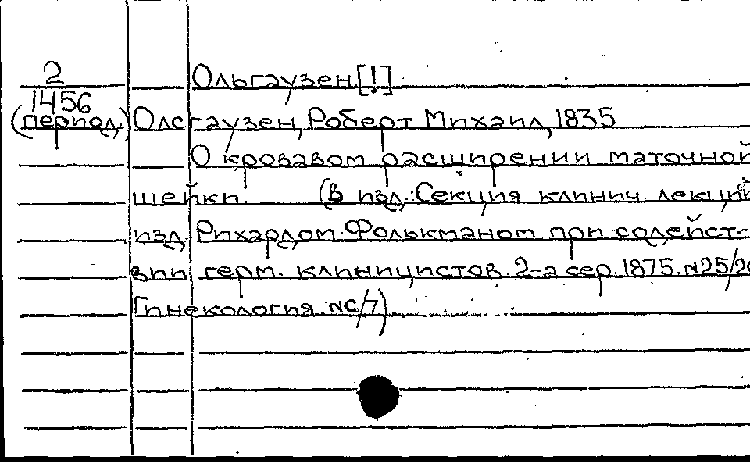 2
Ольгаузен [!]
1456
(период.) Олсгаузен, Роберт Михаил, 1835
О кровавом расширении маточной
шейки. (В изд.: Секция клинич. лекций
изд. Рихардом Фолькманом при содейст-
вии герм. клиницистов. 2-а сер. 1875. №25/26
Гинекология №6/7)